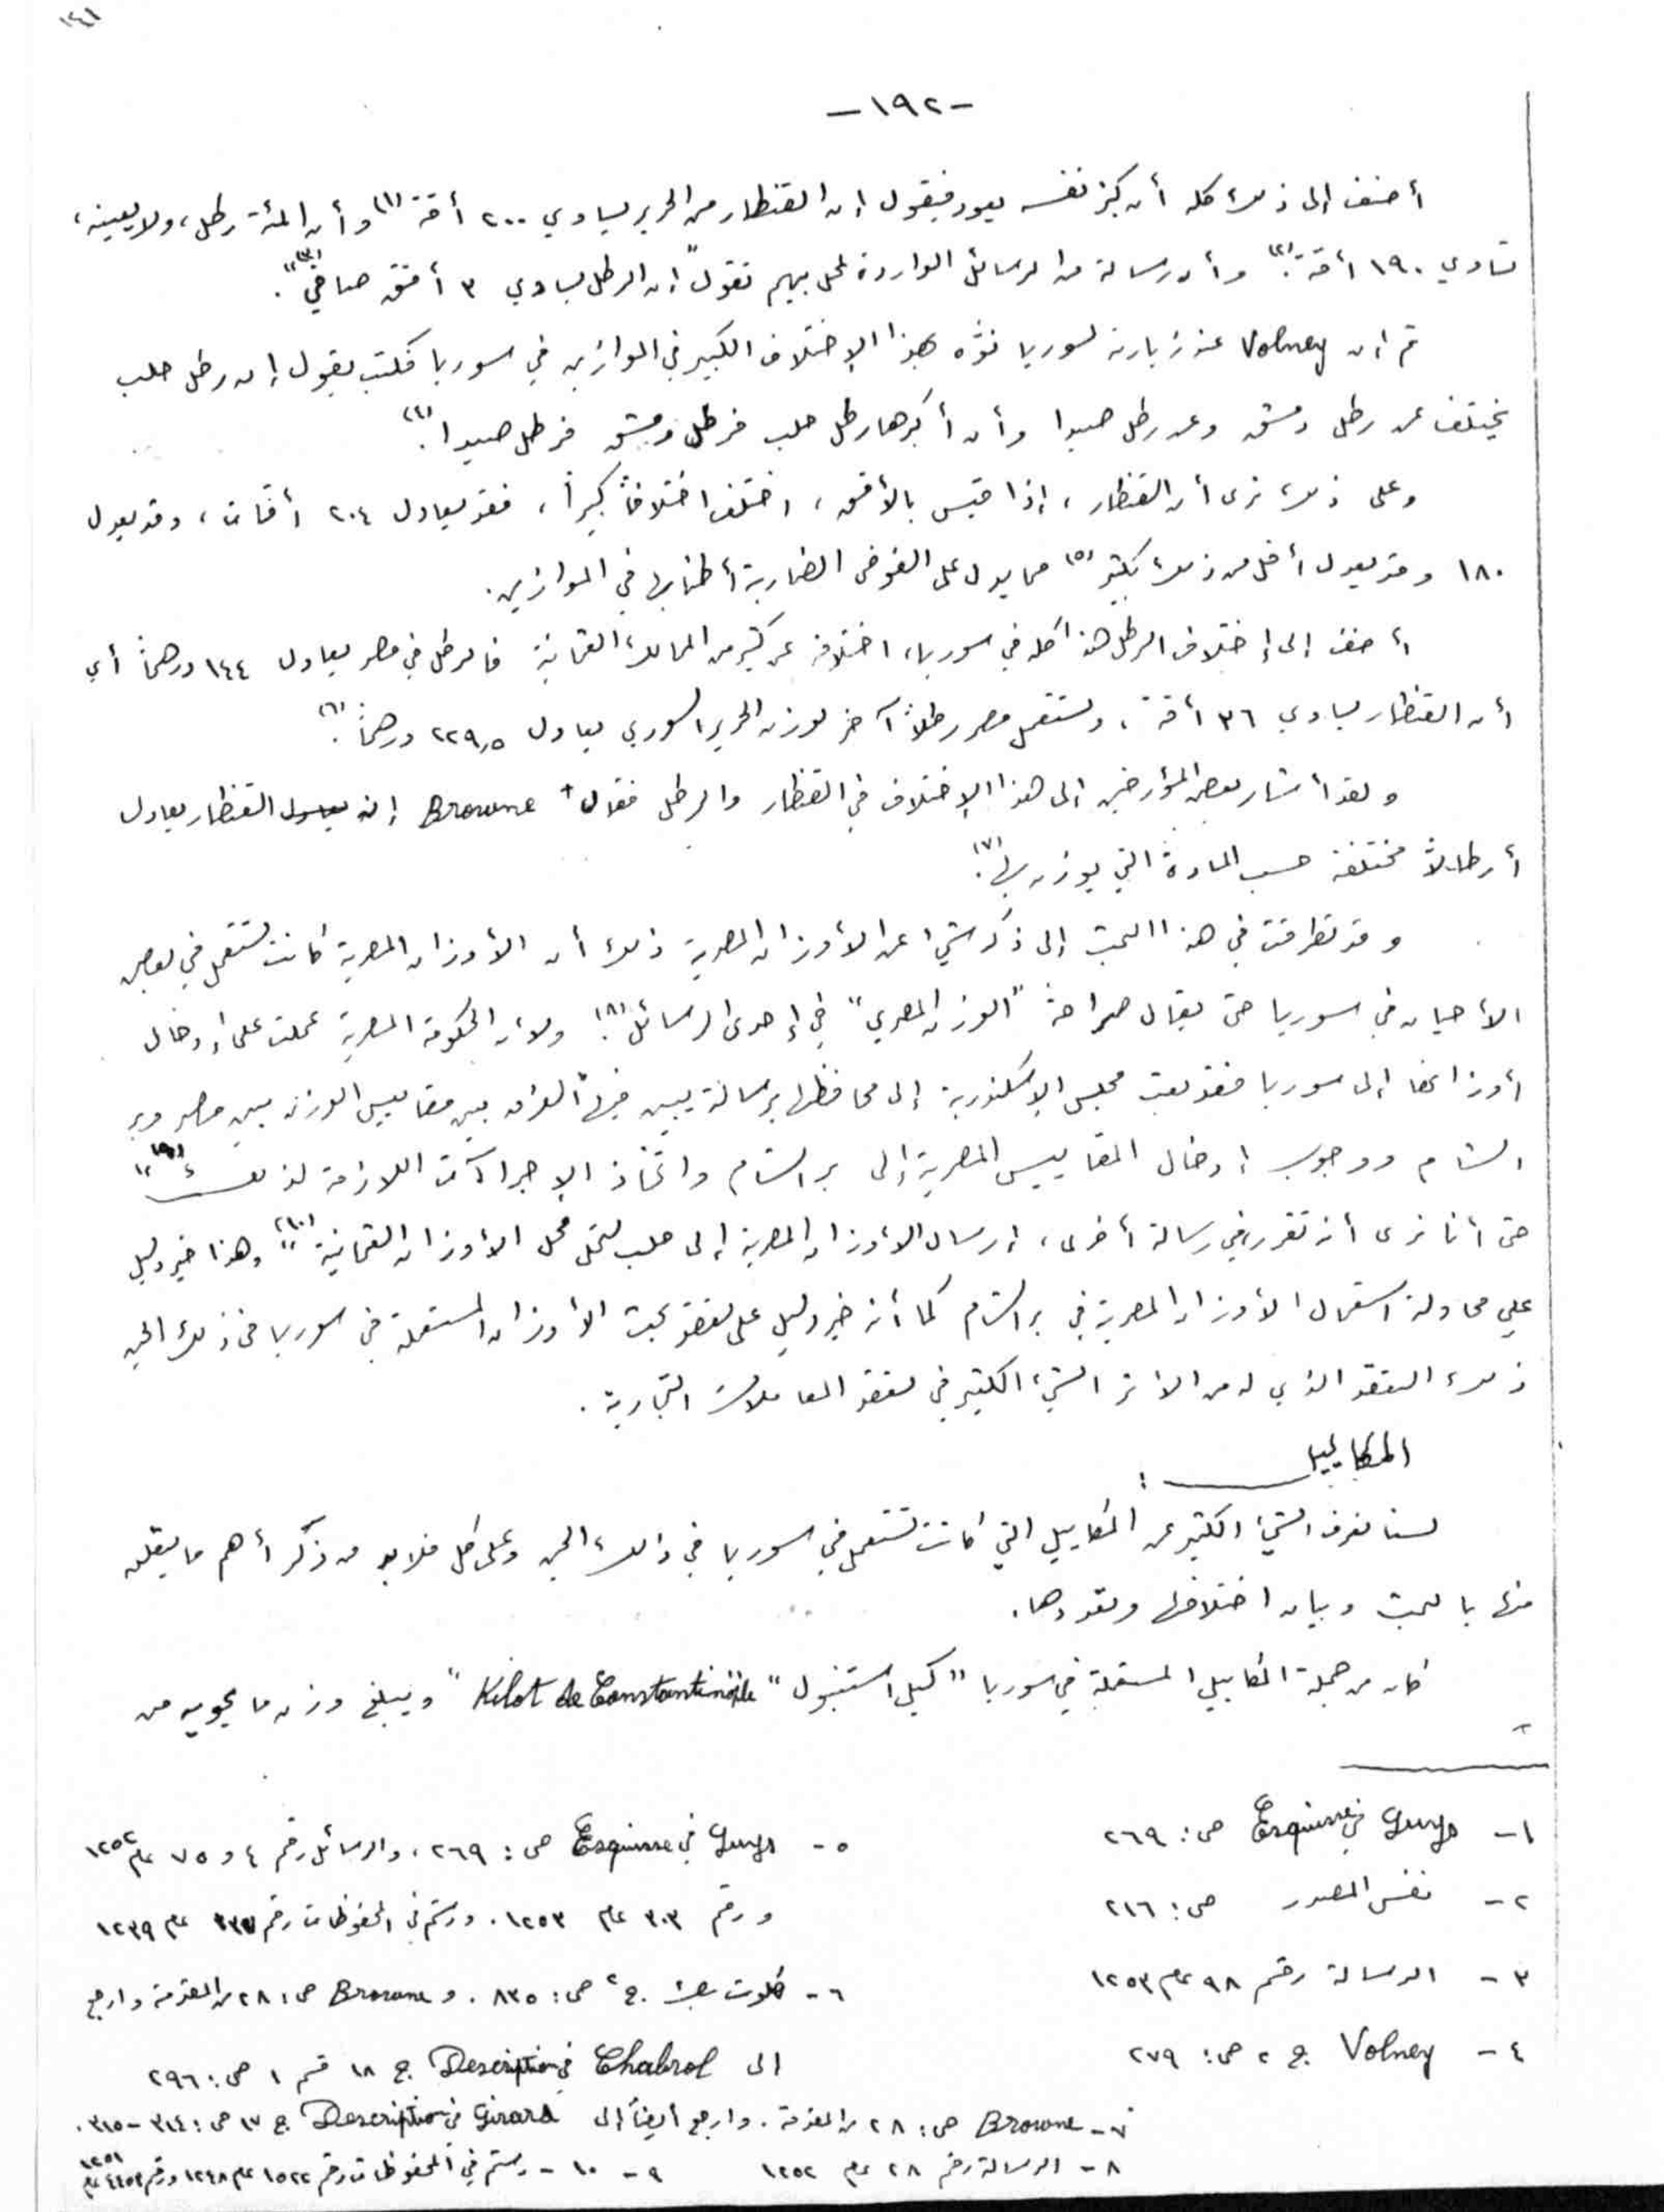 -١٩٢-
أضف إلى ذلك كله أن كيز نفسه يعود فيقول إن القنطار من الحرير يساوي ٢٠٠ أقة (١) وأن المئة رطل، ولا يعينه،
تساوي ١٩٠ أقة (٢). وأن رسالة من الرسائل الواردة لمحل بيهم تقول "إن الرطل يساوي ٣ أقق صافي" (٣).
ثم إن Volney عند زيارته لسوريا نوّه بهذا الإختلاف الكبير في الموازين في سوريا فكتب يقول إن رطل حلب
يختلف عن رطل دمشق وعن رطل صيدا وأن أكبرها رطل حلب فرطل دمشق فرطل صيدا (٤).
وعلى ذلك نرى أن القنطار، إذا قيس بالأقق، اختلف اختلافاً كبيراً، فقد يعادل ٢٠٤ أقات، وقد يعدل
١٨٠ وقد يعدل أقل من ذلك بكثير (٥) مما يدل على الفوضى الضاربة أطنابها في الموازين.
أضف إلى إختلاف الرطل هذا كله في سوريا، اختلافه عن كثير من الممالك العثمانية فالرطل في مصر يعادل ١٤٤ درهماً أي
أن القنطار يساوي ٣٦ أقة، وتستعمل مصر رطلاً آخر لوزن الحرير السوري يعادل ٢٢٩,٥ درهماً (٦).
ولقد أشار بعض المؤرخين الى هذا الإختلاف في القنطار والرطل فقال Browne إن القنطار يعادل
أرطالاً مختلفة حسب المادة التي يوزن بها (٧).
وقد تطرقت في هذا البحث إلى ذكر شيء عن الأوزان المصرية ذلك أن الأوزان المصرية كانت تستعمل في بعض
الأحيان في سوريا حتى يقال صراحة "الوزن المصري" في إحدى الرسائل (٨). ولأن الحكومة المصرية عملت على إدخال
أوزانها إلى سوريا فقد بعث مجلس الإسكندرية إلى محافظها برسالة يبين فيها "الفرق بين مقاييس الوزن بين مصر وبر
الشام ووجوب إدخال المقاييس المصرية إلى بر الشام واتخاذ الإجراآت اللازمة لذلك" (٩)
حتى أننا نرى أنه تقرر في رسالة أخرى، إرسال الأوزان المصرية إلى حلب لتحل محل الأوزان العثمانية (١٠)" وهذا خير دليل
على محاولة استعمال الأوزان المصرية في بر الشام كما أنه خير دليل على تعقد بحث الأوزان المستعملة في سوريا في ذلك الحين
ذلك التعقد الذي له من الأثر الشيء الكثير في تعقد المعاملات التجارية.
المكاييل :
لسنا نعرف الشيء الكثير عن المكاييل التي كانت تستعمل في سوريا في ذلك الحين وعلى كل فلا بد من ذكر أهم ما يتعلق
منها بالبحث وبيان اختلافها وتعددها.
كان من جملة المكاييل المستعملة في سوريا "كيل استنبول" "Kilot de Constantinople" ويبلغ وزن ما يحويه من
١- Guys في Esquisse ص: ٢٦٩
٢- نفس المصدر ص: ٢١٦
٣- الرسالة رقم ٩٨ عام ١٢٥٣
٤- Volney ج ٢ ص: ٢٧٩
٥- Guys في Esquisse ص: ٢٦٩، والرسائل رقم ٤ و ٧٥ عام ١٢٥٢
ورقم ٣٠٣ عام ١٢٥٣. ورستم في المحفوظات رقم عام ١٢٣٩
٦- كلوت بك ج ٢ ص: ٨٣٥. و Browne ص: ٢٨ من المقدمة وارجع
الى Chabrol في Description ج ١٨ قسم ١ ص: ٢٩٦
٧- Browne ص: ٢٨ من المقدمة. وارجع أيضاً إلى Girard في Description ج ١٧ ص: ٣١٤-٣١٥.
٨- الرسالة رقم ٢٨ عام ١٢٥٢
٩- ١٠- رستم في المحفوظات رقم ١٥٢٢ عام ١٢٤٨ ورقم ٤٤٥٢ عام ١٢٥١